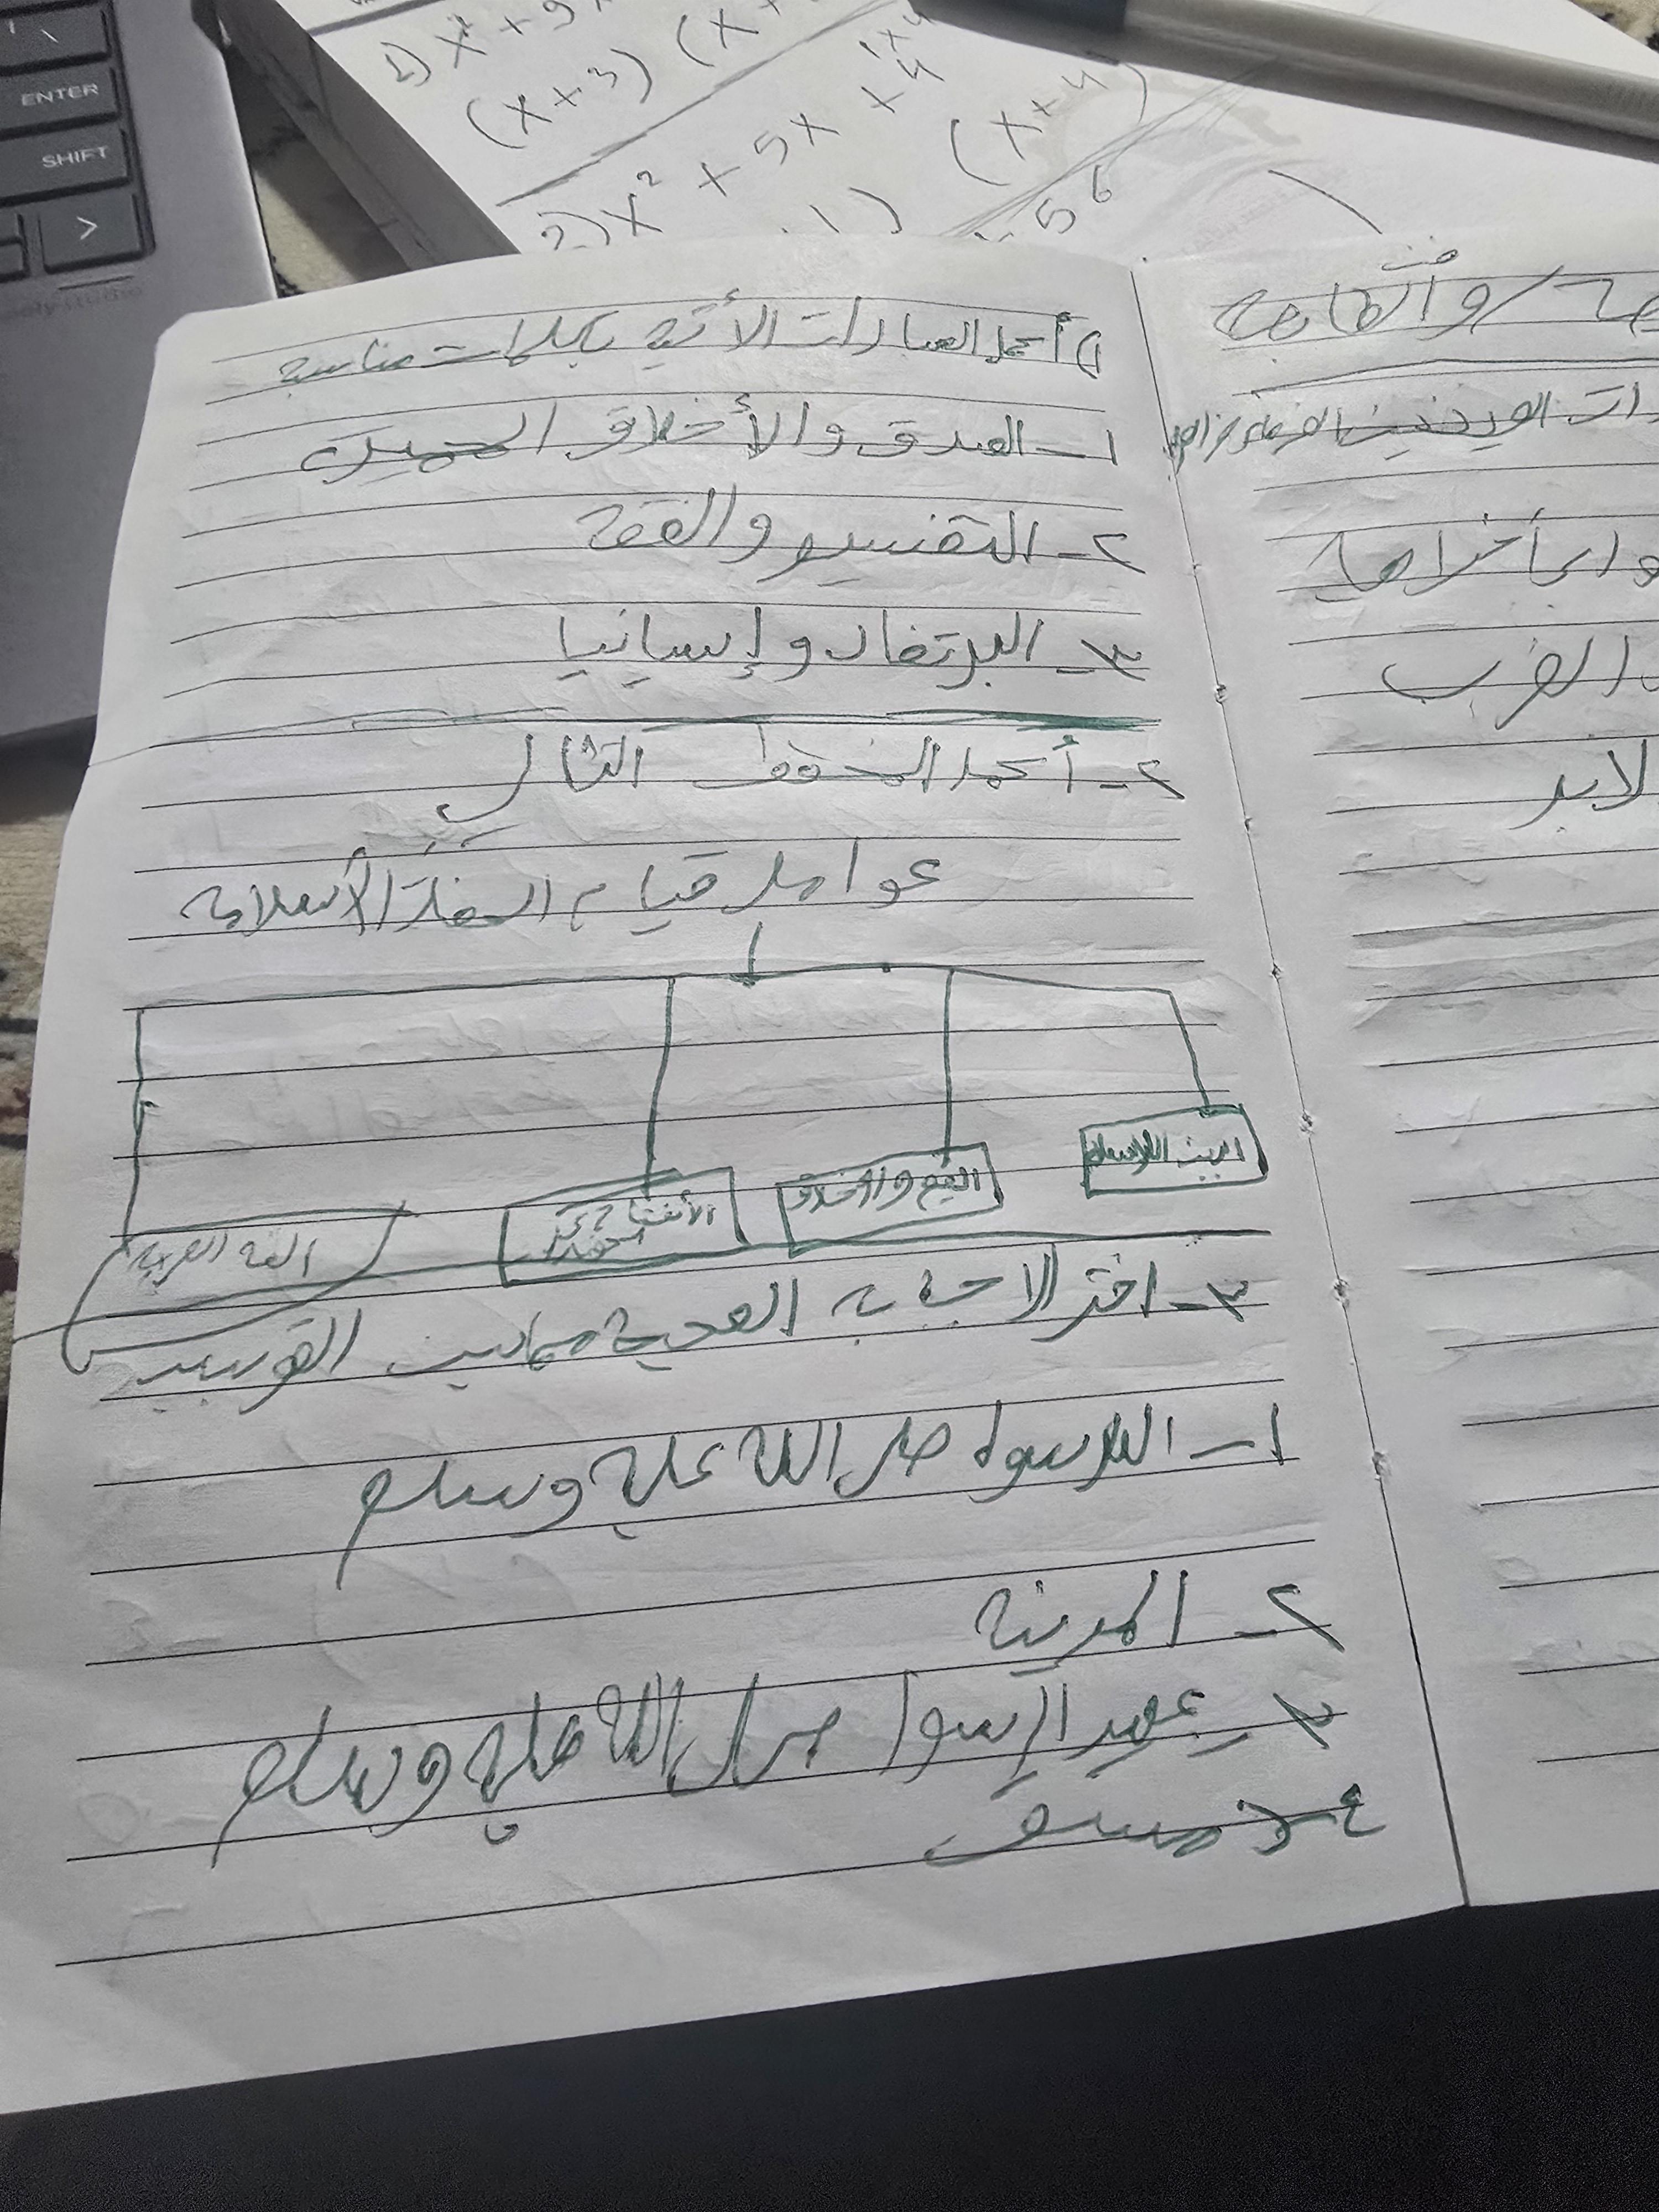 ENTER
SHIFT
>
1) x² + 9
(x+3) (x+
2) x² + 5x + 4
1x4
1) (x+4)
56
١) أكمل العبارات الأتية بكلمات مناسبة
١- الصدق والأخلاق الحميدة
٢- التفسير والفقه
٣- البرتغال وإسبانيا
٢- أكمل المخطط التالي
عوامل قيام الحضارة الأسلامية
الدين الإسلامي
القيم والأخلاق
الأنفتاح على الحضارات
اللغة العربية
٣- اختر الاجابة الصحيحة مما بين القوسين
١- الرسول صلى الله عليه وسلم
٢- المدينة
٣- عهد الرسول صلى الله عليه وسلم
٤- دمشق
الغرب
لابد